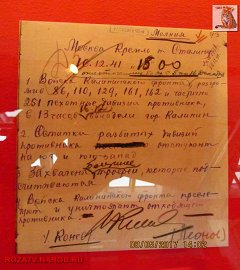 Молния
Москва Кремль т. Сталину
16.12.41 1500
1. Войска Калининского фронта, разгро
мив 86, 110, 129, 161, 162 и частично
251 пехотные дивизии противника,
в 13 часов город Калинин
2. Остатки разбитых дивизий
противника отступают
на юг и
большие
Захвачены трофеи, которые под-
считываются
Войска Калининского фронта пресле-
дуют и уничтожают отходящего
противника
Конев
(Леонов)
08/05/2017 14:02
ROZATV.NAROD.RU